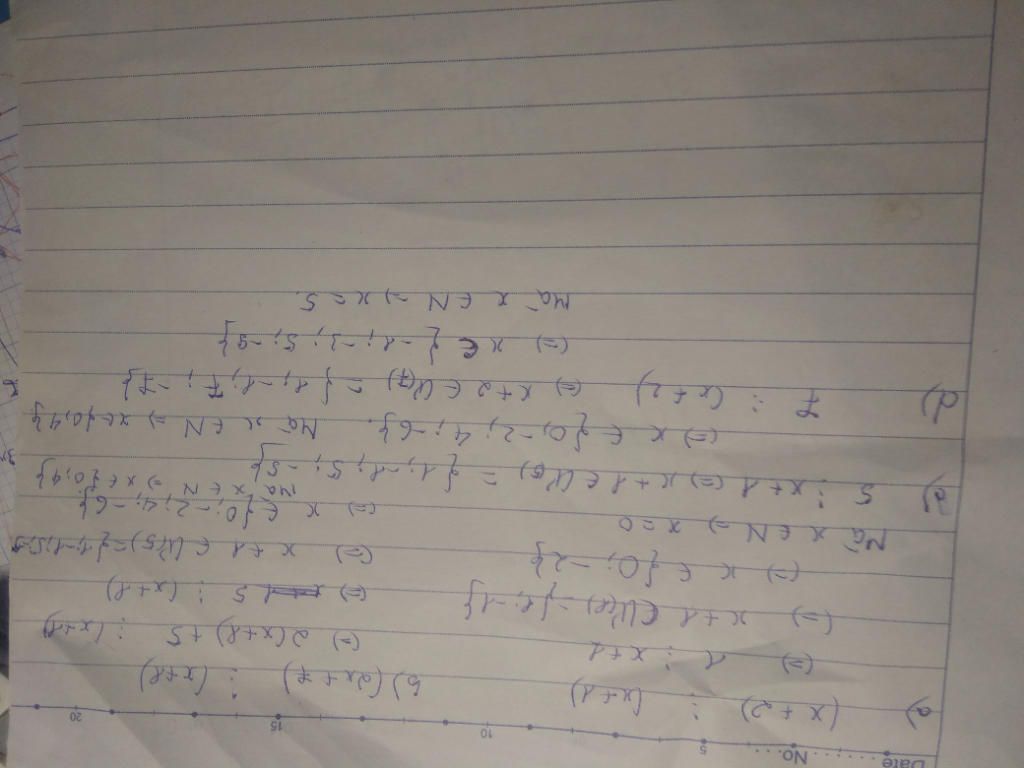 Date No
5 10 15 20
a) (x+2) ⋮ (x+1)
(=) 1 ⋮ x+1
(=) x+1 ∈ Ư(1) = {1; -1}
(=) x ∈ {0; -2}
Mà x ∈ N => x = 0
b) (2x+7) ⋮ (x+1)
(=) 2(x+1) + 5 ⋮ (x+1)
(=) 5 ⋮ (x+1)
(=) x+1 ∈ Ư(5) = {1; -1; 5;
(=) x ∈ {0; -2; 4; -6}
Mà x ∈ N => x ∈ {0, 4}
5 ⋮ x+1 (=) x+1 ∈ Ư(5) = {1; -1; 5; -5}
(=) x ∈ {0, -2; 4; -6}. Mà x ∈ N => x ∈ {0, 4}
d) 7 ⋮ (x+2) (=) x+2 ∈ Ư(7) = {1; -1; 7; -7}
(=) x ∈ {-1; -3; 5; -9}
Mà x ∈ N => x = 5.